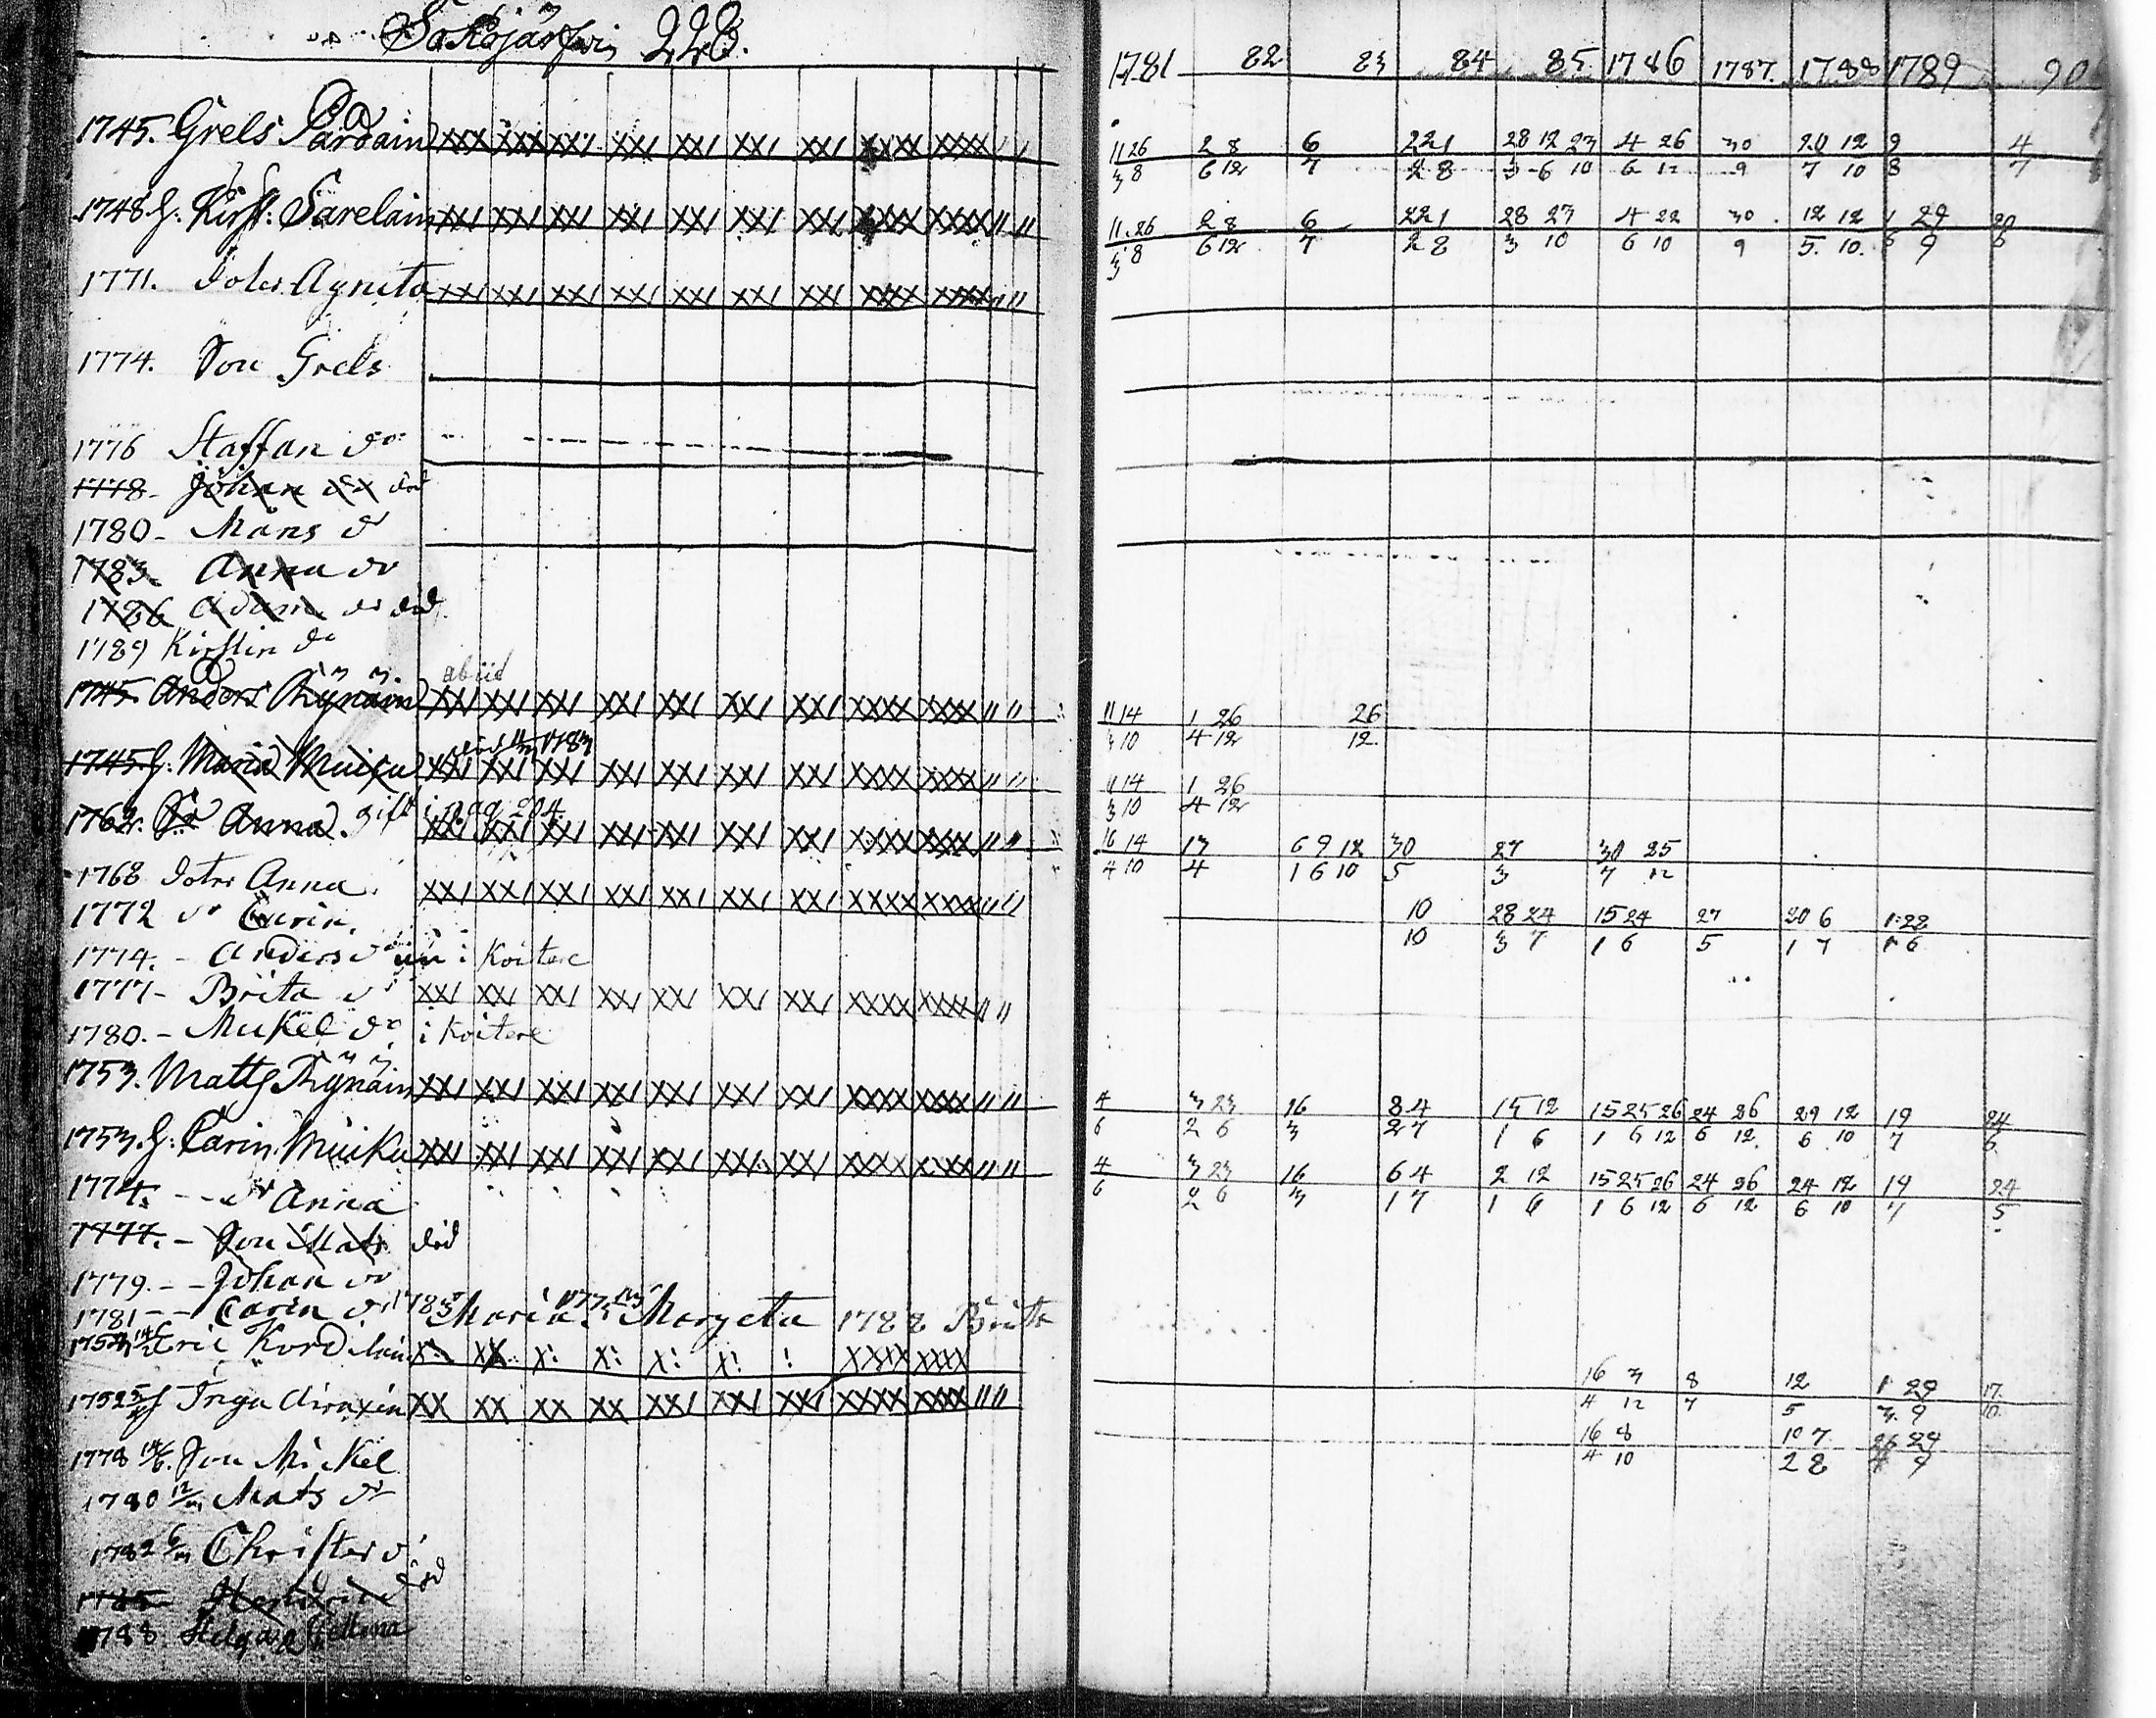 Sokojärfwi 226.
1781 82 83 84 85 1786 1787 1788 1789 90
1745. Grels Pardain
11 26 2 8 6 22 1 28 12 23 4 26 30 20 12 9 4
3 8 6 12 7 2 8 3 6 10 6 12 9 7 10 8 7
1748 h. Kirst. Sarelain
11.26 2 8 6 22 1 28 27 4 22 30 12 12 1 29 20
3 8 6 12 7 2 8 3 10 6 10 9 5. 10. 9 6
1771. doter Agneta
1774. Son Grels
1776 Staffan do
1778- Johan do död
1780- Måns do
1783- Anna do
1786 Adam do död
1789 Kirstin do
abiit
1745. Anders Ryynäin
11 14 1 26 26
3 10 4 12 12
död 1783
1745. h. Maria Muiku
11 14 1 26
3 10 4 12
1762. Anna. gift i pag 204
16 14 13 6 9 12 30 27 30 25
4 10 4 1 6 10 5 3 7 12
1768 doter Anna
1772 do Carin.
10 28 24 15 24 27 20 6 1 22
10 3 7 1 6 5 1 7 1 6
1774. - Anders do i Koitere
1777- Brita do
1780. - Mickel do i Koitere
1753. Matts Ryynäin
4 3 23 16 8 4 15 12 15 25 26 24 26 29 12 19 24
6 2 6 3 2 7 1 6 1 6 12 6 12. 6 10 7 6
1753. h. Carin Muiku
4 3 23 16 6 4 2 12 15 25 26 24 26 24 12 19 24
6 2 6 3 1 7 1 6 1 6 12 6 12 6 10 7 5
1774. - - do Anna
1777. - Son Mats död
1779. - - Johan do
1781 - - Carin do 1783 Maria Margeta 1788 Brita
Eric
16 3 8 12 1 29 17
4 12 7 5 3 9 10
1752 h Inga
16 8 10 7 26 29
4 10 2 8 4 9
1778 Son Mickel
1780 Mats do
1782 Christer do
1785 död
1788 Helga